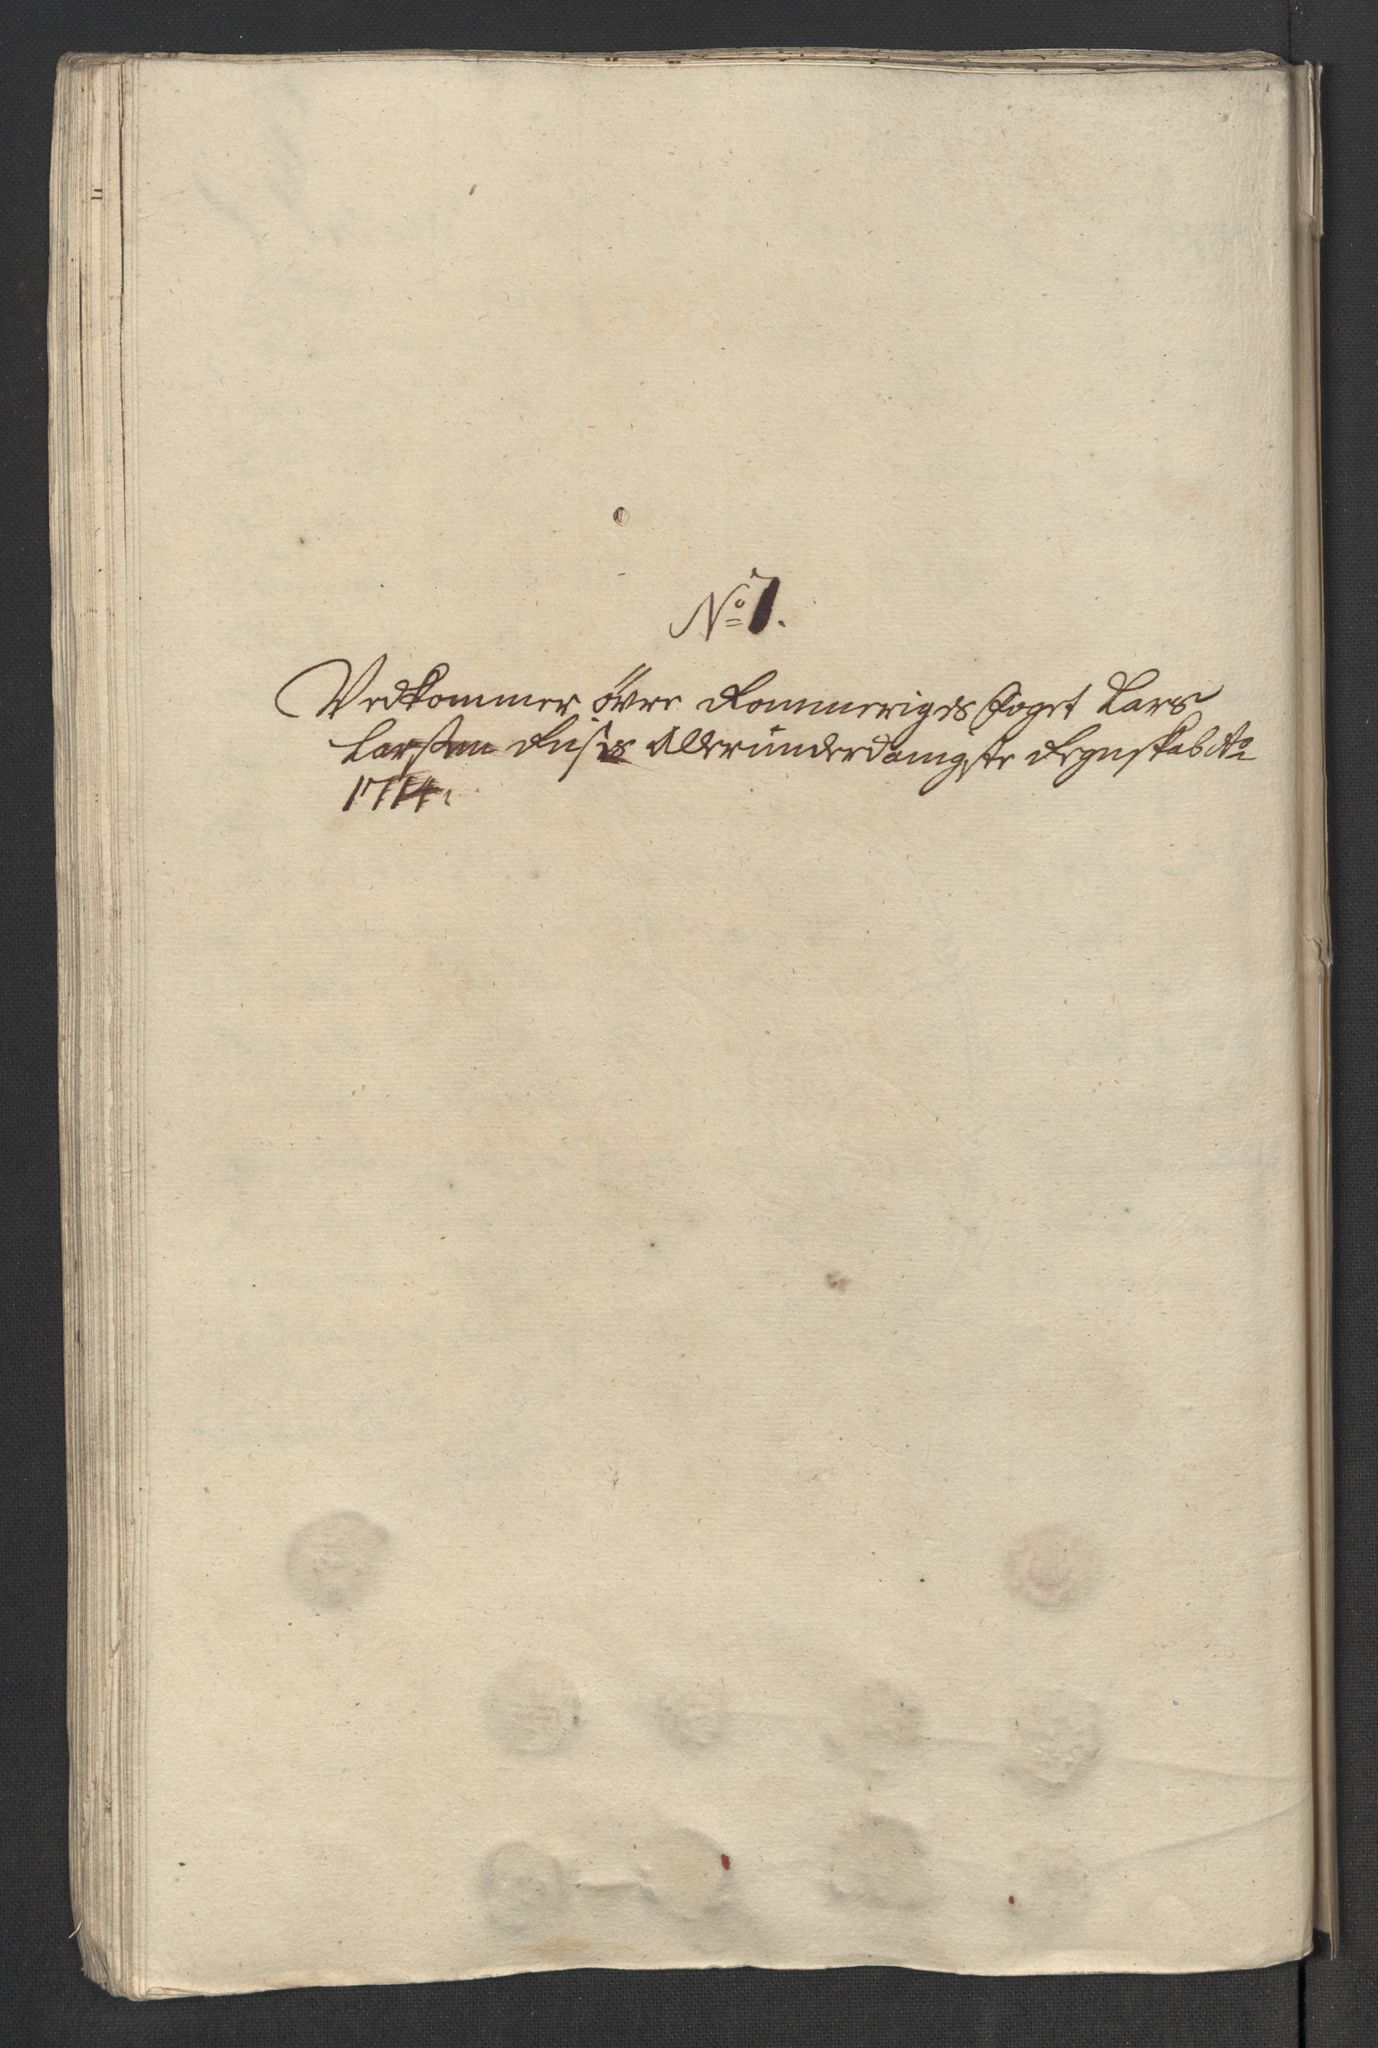 No 7.
Vedkommer Øvre Rommeriges Foget Lars
Larsen Riises Allerunderdanigste Regnskab Ao
1714.